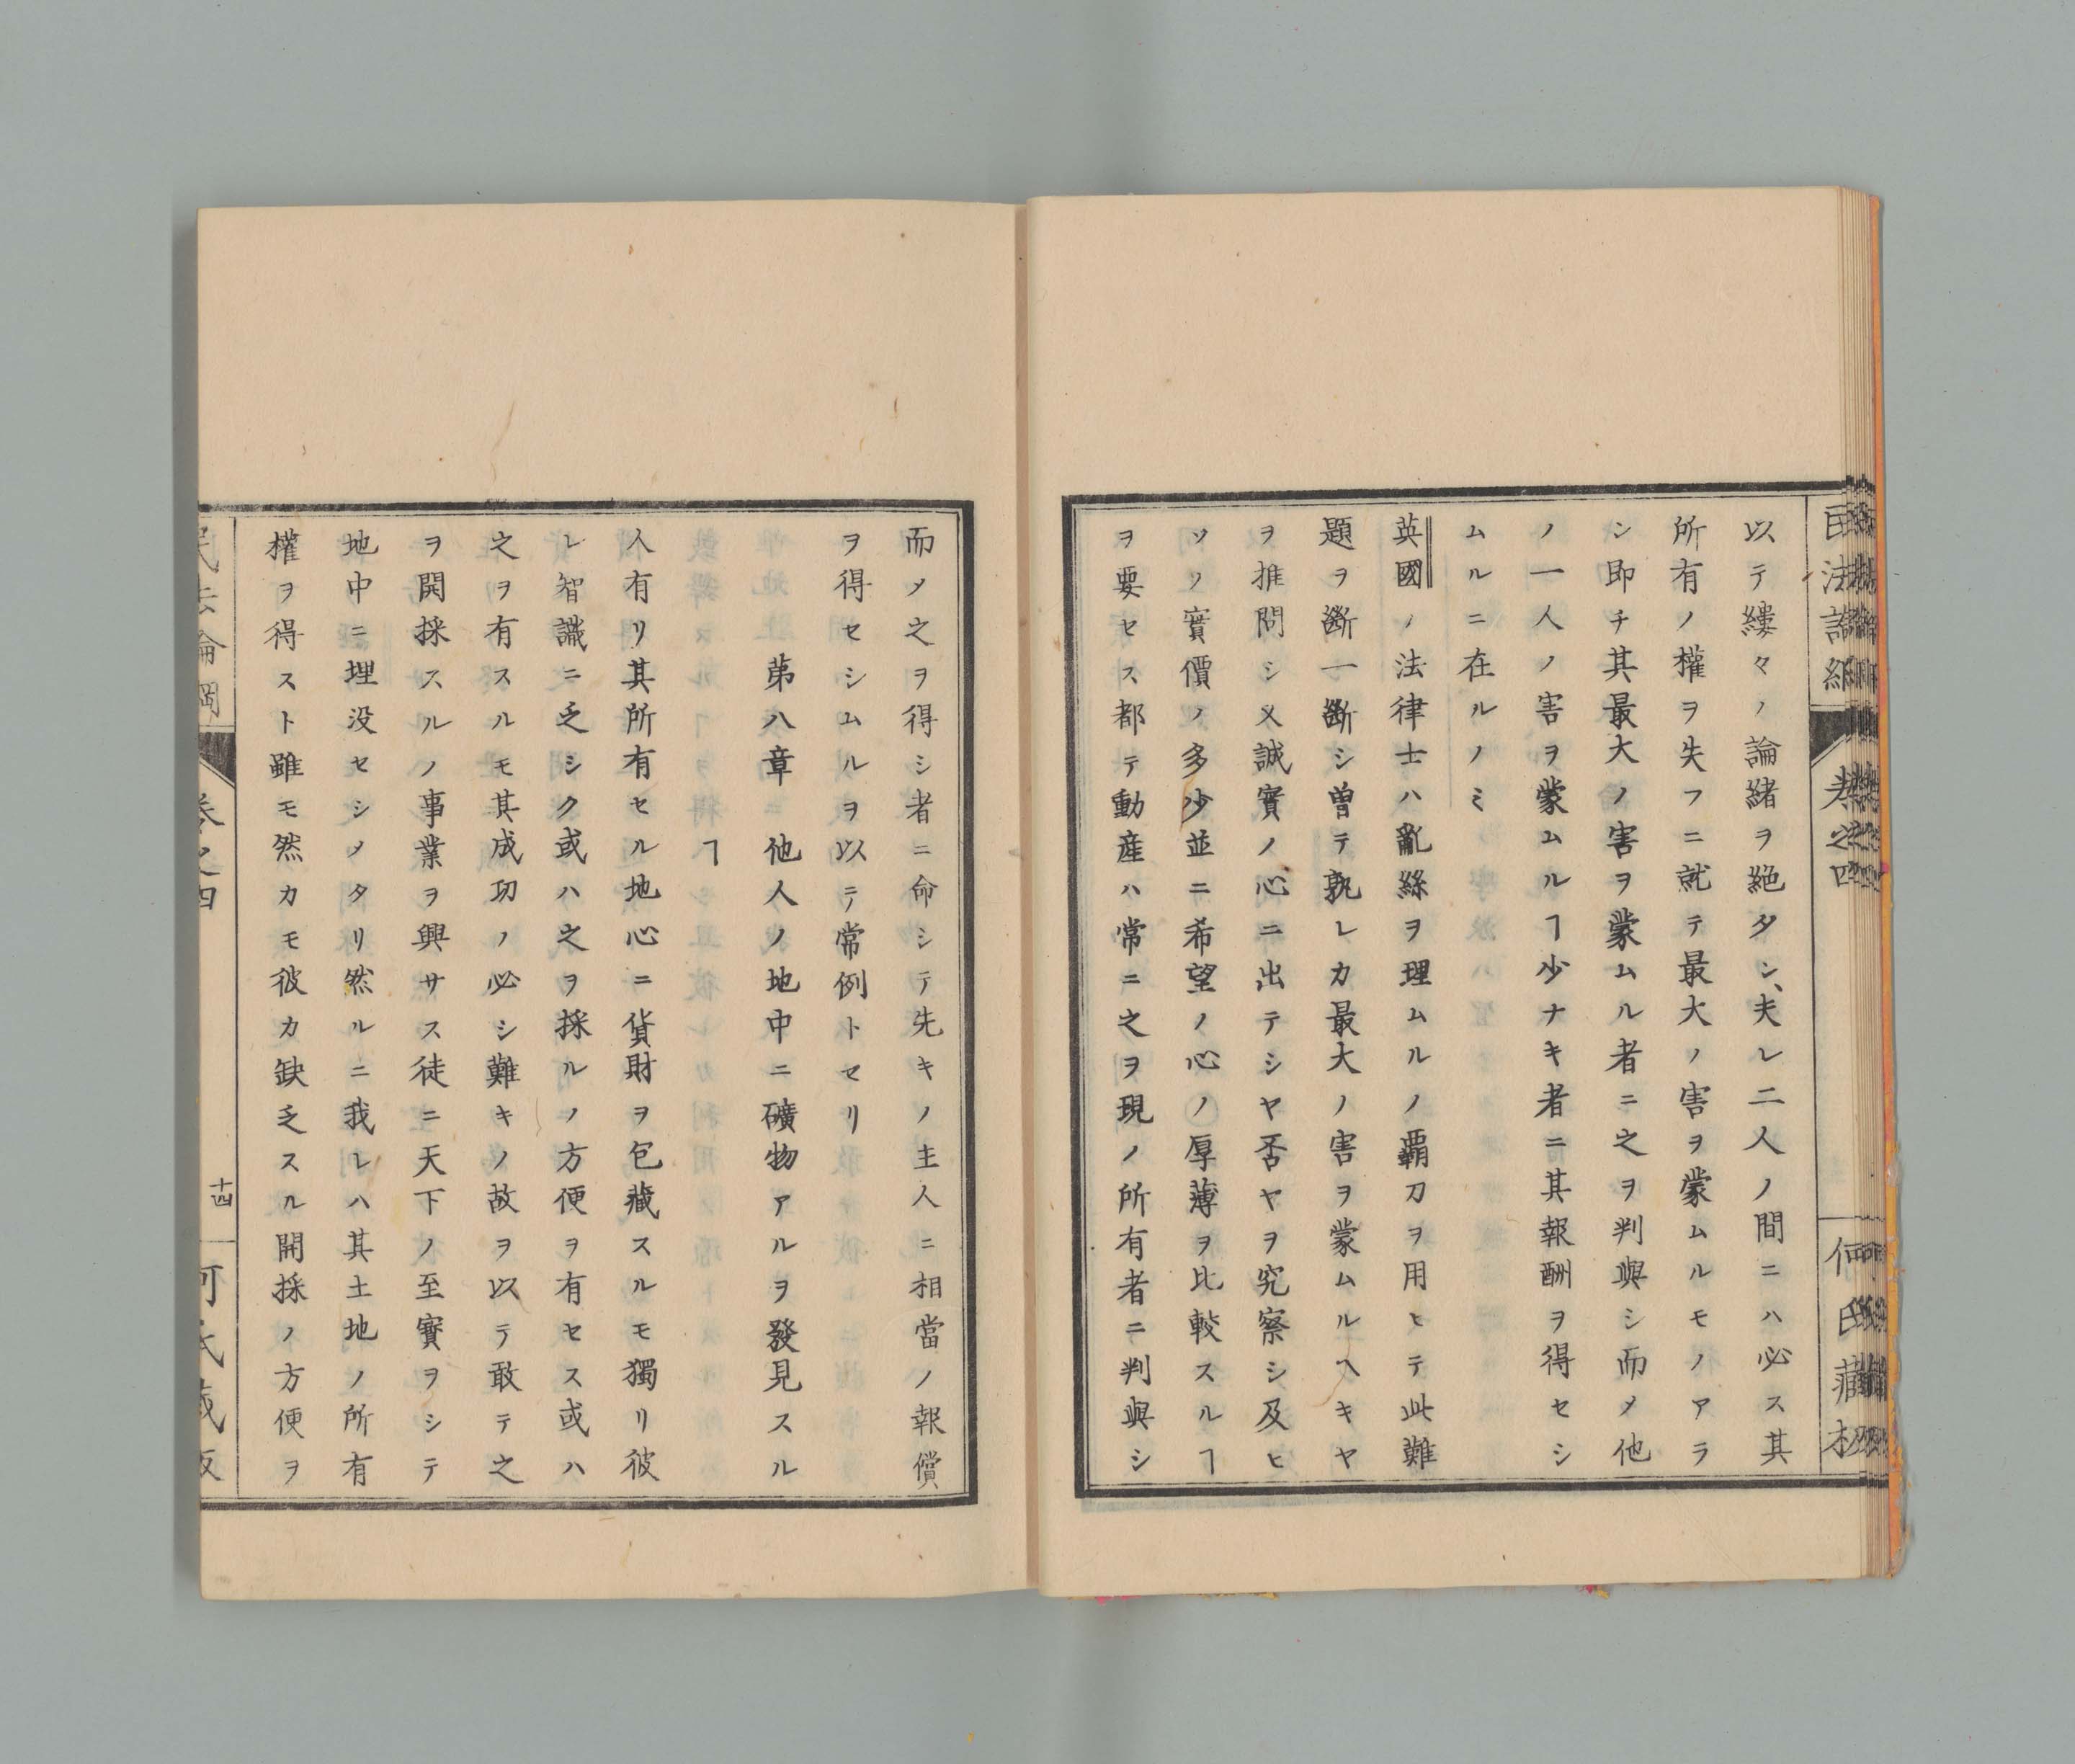 民法論綱
卷之四
何氏藏板
以テ縷々ノ論緒ヲ絶タン、夫レ二人ノ間ニハ必ス其
所有ノ權ヲ失フニ就テ最大ノ害ヲ蒙ムルモノアラ
ン即チ其最大ノ害ヲ蒙ムル者ニ之ヲ判與シ而メ他
ノ一人ノ害ヲ蒙ムルヿ少ナキ者ニ其報酬ヲ得セシ
ムルニ在ルノミ
英國ノ法律士ハ亂絲ヲ理ムルノ覇刀ヲ用ヒテ此難
題ヲ斷一斷シ曽テ孰レカ最大ノ害ヲ蒙ムルヘキヤ
ヲ推問シ又誠實ノ心ニ出テシヤ否ヤヲ究察シ及ヒ
ソノ實價ノ多少並ニ希望ノ心ノ厚薄ヲ比較スルヿ
ヲ要セス都テ動産ハ常ニ之ヲ現ノ所有者ニ判與シ
而メ之ヲ得シ者ニ命シテ先キノ主人ニ相當ノ報償
ヲ得セシムルヲ以テ常例トセリ
第八章 他人ノ地中ニ礦物アルヲ發見スル
ヿ
人有リ其所有セル地心ニ貨財ヲ包藏スルモ獨リ彼
レ智識ニ乏シク或ハ之ヲ採ルノ方便ヲ有セス或ハ
之ヲ有スルモ其成功ノ必シ難キノ故ヲ以テ敢テ之
ヲ開採スルノ事業ヲ興サス徒ニ天下ノ至寳ヲシテ
地中ニ埋没セシメタリ然ルニ我レハ其土地ノ所有
權ヲ得スト雖モ然カモ彼カ缺乏スル開採ノ方便ヲ
民法論綱
卷之四
十四
何氏藏板